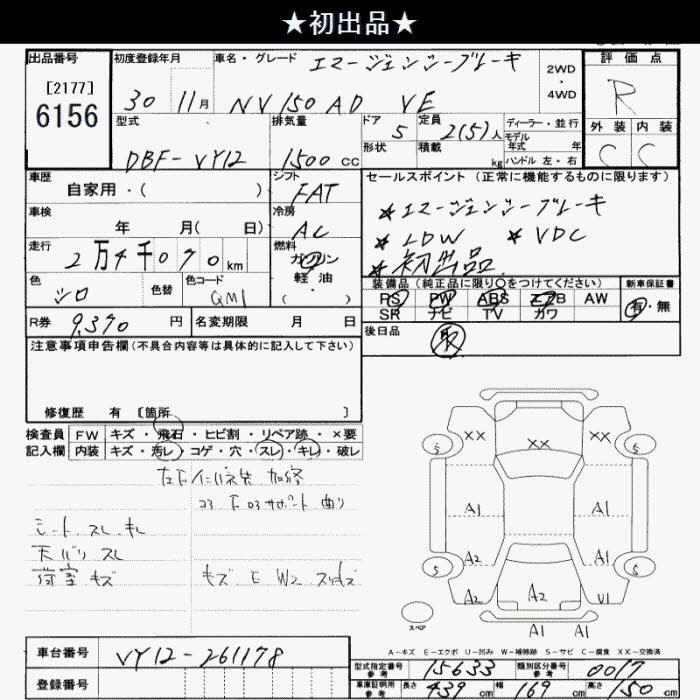 ★初出品★
出品番号 初度登録年月 車名・グレード エマージェンシーブレーキ 2WD・4WD 評価点
[2177] 6156 30 11月 NV150AD VE R
型式 排気量 ドア 定員 ディーラー・並行 外装 内装
DBF-VY12 1500cc 5 2(5)人 モデル年式 年 C C
形状 積載 kg ハンドル 左・右
車歴 自家用・( ) シフト FAT セールスポイント(正常に機能するものに限ります)
車検 年 月(日) 冷房 AC ★エマージェンシーブレーキ
★LDW ★VDC
走行 2万4千070km 燃料 ガソリン 軽油・( ) ★初出品
色 シロ 色替 色コード QM1 装備品(純正品に限り○をつけてください) 新車保証書
PS PW ABS エアB AW 有・無
R券 9,370円 名変期限 月 日 SR ナビ TV カワ
後日品 取
注意事項申告欄(不具合内容等は具体的に記入して下さい)
修復歴 有 [箇所 ]
検査員 FW キズ・飛石・ヒビ割・リペア跡・×要
記入欄 内装 キズ・汚レ・コゲ・穴・スレ・キレ・破レ
コア F
サポート 曲り
シート スレ キレ
天バリ スレ
荷室 キズ
キズ E W2
XX XX XX
S S
A1 A1
A2 A2 A1
S S
A2 A2 U1
スペア A1 A1
A-キズ E-エクボ U-凹み W-補修跡 S-サビ C-腐食 XX-交換済
車台番号 VY12-261178
型式指定番号 参考 15633 類別区分番号 参考 0017
登録番号
車庫証明用 参考 長さ 439cm 幅 169cm 高さ 150cm